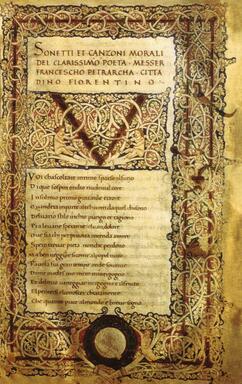 SONETTI ET CANZONI MORALI
DEL CLARISSIMO POETA · MESSER
FRANCESCHO PETRARCHA · CITTA
DINO FIORENTINO
VOi chascoltate inrime sparse ilsuono
Di que sospiri ondio nudriual core
Insulmio primo giouenile errore
Quandera inparte altrhuom daquel chisono
Deluario stile inchio piango et ragiono
Fra leuane speranze eluan dolore
Oue sia chi per pruoua intenda amore
Spero trouar pieta nonche perdono
Ma ben ueggio or sicome alpopol tutto
Fauola fui gran tempo onde souente
Dime medesmo meco miuergogno
Et delmio uaneggiar uergogna e ilfrutto
El pentersi elconoscer chiaramente
Che quanto piace almondo e breue sogno